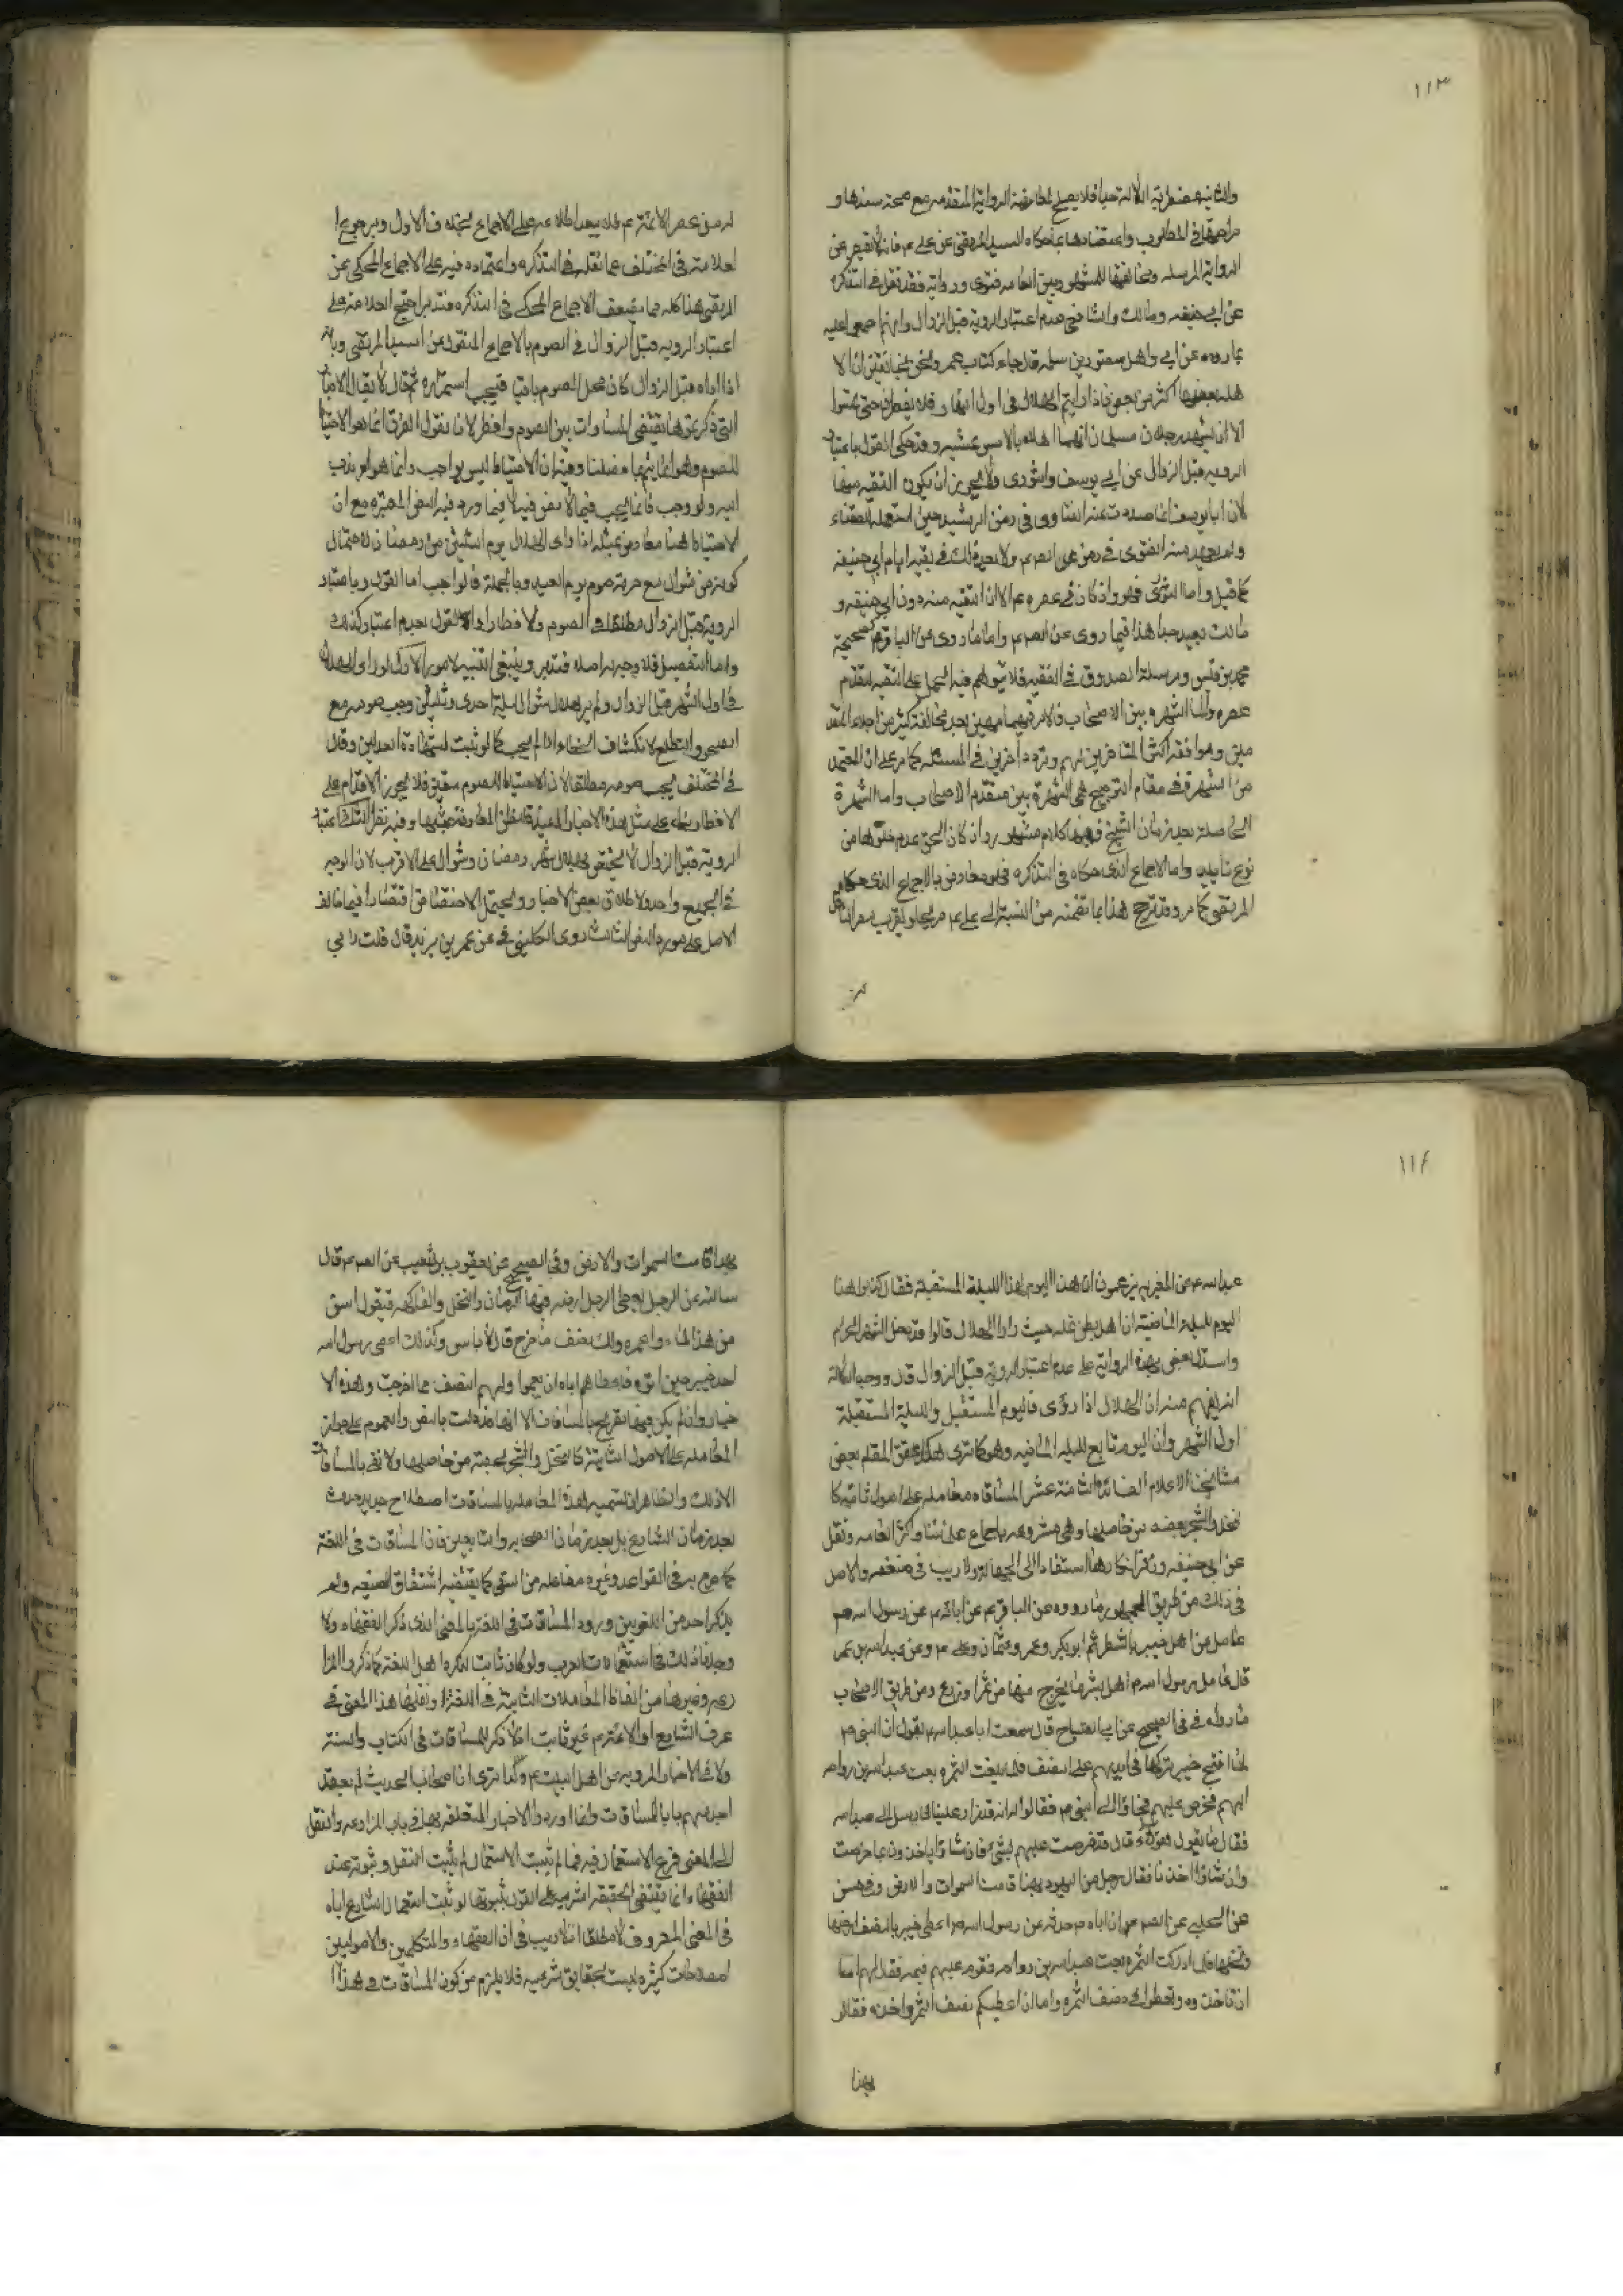 ١١٣
والثانية مضطربة الدلالة جدا فلا يصلح لمعارضة الرواية المتقدمة مع صحة سندها و
صراحتها في المطلوب واعتضادها بما حكاه السيد المرتضى عن علي ع فانه لا يقصر عن
الرواية المرسله ومخالفتها للمشهور بين العامه فتوى ورواية فقد نقل في التذكره
عن ابي حنيفه ومالك والشافعي عدم اعتبار الروية قبل الزوال وانهم احتجوا عليه
بما رووه عن ابي وايل شقيق بن سلمه قال جاء كتاب عمر ونحن بخانقين ان الا
هله بعضها اكثر من بعض فاذا رايتم الهلال في اول النهار فلا تفطروا حتى تمسوا
الا ان يشهد رجلان مسلمان انهما اهلاه بالامس عشيه وقد حكى القول باعتبار
الرويه قبل الزوال عن ابي يوسف والثوري ولا يجوز ان يكون التقيه منهما
لان ابا يوسف انما صدرت عنه الفتاوى في زمن الرشيد حين استعمله للقضاء
ولم يعهد منه الفتوى في زمن الص ع ولا بعد ذلك في بقية ايام ابي حنيفه
كما قيل واما الثوري فهو وان كان في عصره ع الا ان التقيه منه دون ابي حنيفه و
مالك بعيد جدا هذا فيما روى عن الص ع واما ما روى عن الباقر ع كصحيحة
محمد بن قيس ومرسلة الصدوق في الفقيه فلا يتوهم فيه الحمل على التقيه لتقدم
عصره واما الشهره بين الاصحاب فالامر فيها هين بعد مخالفة كثير من اجلاء المتقد
مين وموافقة اكثر المتاخرين لهم وتردد اخرين في المسئلة كما مر على ان المعتمد
من الشهرة في مقام الترجيح هي الشهرة بين متقدم الاصحاب واما الشهرة
الحاصلة بعد زمان الشيخ ففيها كلام مشهور وان كان الحق عدم خلوها من
نوع تاييد واما الاجماع الذي حكاه في التذكره فهو معارض بالاجماع الذي حكاه
المرتضى كما مر وقد ترجح هذا بما تضمنه من النسبة الى علي ع صريحا ولقرب عصر الناقل
له من عصر الائمة ع فلا يبعد اطلاعه على الاجماع بخلاف الاول وبرجوع ا
لعلامة في المختلف عما نقله في التذكره واعتماده فيه على الاجماع المحكي عن
المرتضى هذا كله مما يضعف الاجماع المحكي في التذكره فتدبر احتج العلامة على
اعتبار الرويه قبل الزوال في الصوم بالاجماع المنقول عن السيد المرتضى وبانه
اذا راه قبل الزوال كان محل الصوم باقيا فيجب استمراره ثم قال لا يقال الاخبار
التي ذكرتموها تقتضي المساوات بين الصوم والفطر لانا نقول الفرق انما هو الاحتياط
للصوم وهو انما يتم بما فصلنا وفيه ان الاحتياط ليس بواجب وانما هو امر يندب
اليه ولو وجب فانما يجب فيما لا نص فيه لا فيما ورد فيه النص المعتبره مع ان
الاحتياط هنا معارض بمثله اذا راى الهلال يوم الثلثين من رمضان لاحتمال
كونه من شوال مع حرمة صوم يوم العيد وبالجملة فالواجب اما القول باعتبار
الروية قبل الزوال مطلقا في الصوم والافطار او القول بعدم اعتباره كذلك
واما التفصيل فلا وجه له اصلا فتدبر وينبغي التنبيه لامور الاول لو راى الهلال
في اول الشهر قبل الزوال ولم ير هلال شوال ليلة احدى وثلثين وجب صومه مع
الصحو والتطلع لانكشاف الخطاء اذا لم يجب كما لو ثبت بشهادة العدلين وقال
في المختلف يجب صومه مطلقا لان الاحتياط للصوم متعين فلا يجوز الاقدام على
الافطار بناء على مثل هذه الاخبار المفيدة للظن المعارضة بمثلها وفيه نظر الثاني اعتبار
الروية قبل الزوال لا يختص بهلال شهر رمضان وشوال على الاقرب لان الوجه
في الجميع واحد ولاطلاق بعض الاخبار ويحتمل الاختصاص اقتصارا فيما خالف
الاصل على مورد النص الثالث روى الكليني في عن عمر بن يزيد قال قلت لابي
١١٤
عبد الله ع ان المغيريه يزعمون ان هذا اليوم لهذا الليلة المستقبلة فقال كذبوا هذا
اليوم لليلة الماضية ان اهل بطن نخله حيث راوا الهلال قالوا قد دخل الشهر الحرام
واستدل بعض بهذه الرواية على عدم اعتبار الروية قبل الزوال قال ووجه الدلالة
انه يفهم منه ان الهلال اذا رؤى فاليوم المستقبل والليلة المستقبلة
اول الشهر وان اليوم تابع لليلة الماضيه وهو كما ترى هكذا حقق المقام بعض
مشايخنا الاعلام الفائدة الثامنة عشر المساقاه معامله على اصول ثابتة كا
لنخل والشجر بحصه من حاصلها وهي مشروعه باجماع علمائنا واكثر العامه ونقل
عن ابي حنيفه وزفر انكارها استنادا الى الجهالة ولا ريب في ضعفه والاصل
في ذلك من طريق الجمهور ما رووه عن الباقر ع عن ابائه ع عن رسول الله ص
عامل من اهل خيبر بالشطر ثم ابو بكر وعمر وعثمان وعلى ع وعن عبد الله بن عمر
قال عامل رسول الله ص اهل خيبر بشطر ما يخرج منها من ثمر او زرع ومن طريق الاصحاب
ما رواه في في الصحيح عن ابي الصباح قال سمعت ابا عبد الله ع يقول ان النبي ص
لما افتتح خيبر تركها في ايديهم على النصف فلما بلغت الثمره بعث عبد الله بن رواحه
اليهم فخرص عليهم فجاؤا الى النبي ص فقالوا انه قد زاد علينا فارسل الى عبد الله
فقال ما يقول هؤلاء قال قد خرصت عليهم بشئ فان شاؤا ياخذون بما خرصت
وان شاؤا اخذنا فقال رجل من اليهود بهذا قامت السموات والارض وفي الحسن
عن الحلبي عن الص ع ان اباه ع حدثه عن رسول الله ص اعطى خيبر بالنصف ارضها
ونخلها فلما ادركت الثمره بعث عبد الله بن رواحه فقوم عليهم قيمة فقال لهم اما
ان تاخذوه وتعطوني نصف الثمره واما ان اعطيكم نصف الثمر واخذه فقالوا
بهذا
بهذا قامت السموات والارض وفي الصحيح عن يعقوب بن شعيب عن الص ع قال
سالته عن الرجل يعطى الرجل ارضه فيها الرمان والنخل والفاكهه فيقول اسق
من هذا الماء واعمره ولك نصف ما خرج قال لا باس وكذلك اعطى رسول الله
اهل خيبر حين اتوه فاعطاهم اياه ان يعمروا ولهم النصف مما اخرجت وهذه الا
خبار وان لم يكن فيها تصريح بالمساقات الا انها قد دلت بالنص والعموم على جواز
المعامله على الاصول الثابتة كالنخل والشجر بحصة من حاصلها ولا نعنى بالمساقات
الا ذلك والظاهر ان تسميه هذه المعامله بالمساقات اصطلاح جديد حدث
بعد زمان الشارع بل بعد زمان الصحابه والتابعين فان المساقات في اللغة
كما صرح به في القواعد وغيره مفاعله من السقي كما يقتضيه اشتقاق الصيغه ولم
يذكر احد من اللغويين ورود المساقات في اللغة بالمعنى الذي ذكر الفقهاء ولا
وجدنا ذلك في استعمالات العرب ولو كان ثابت لذكره اهل اللغة كما ذكروا المزا
رعه وغيرها من الفاظ المعاملات الثابتة في اللغة ونقلها هذا المعنى في
عرف الشارع او الائمة ع غير ثابت اذ لا ذكر للمساقات في الكتاب والسنة
ولا في الاخبار المرويه عن اهل البيت ع ولذا ترى ان اصحاب الحديث لم يعقد
احد منهم بابا للمساقات وانما اوردوا الاخبار المتعلقه بها في باب المزارعه والنقل
الى المعنى فرع الاستعمال فيه فما لم يثبت الاستعمال لم يثبت النقل وثبوته عند
الفقهاء انما يقتضى الحقيقة الشرعيه على القول بثبوتها لو ثبت استعمال الشارع اياه
في المعنى المعروف لا مطلقا اذ لا ريب في ان للفقهاء والمتكلمين والاصوليين
اصطلاحات كثيره ليست بحقايق شرعيه فلا يلزم من كون المساقات في هذا ا